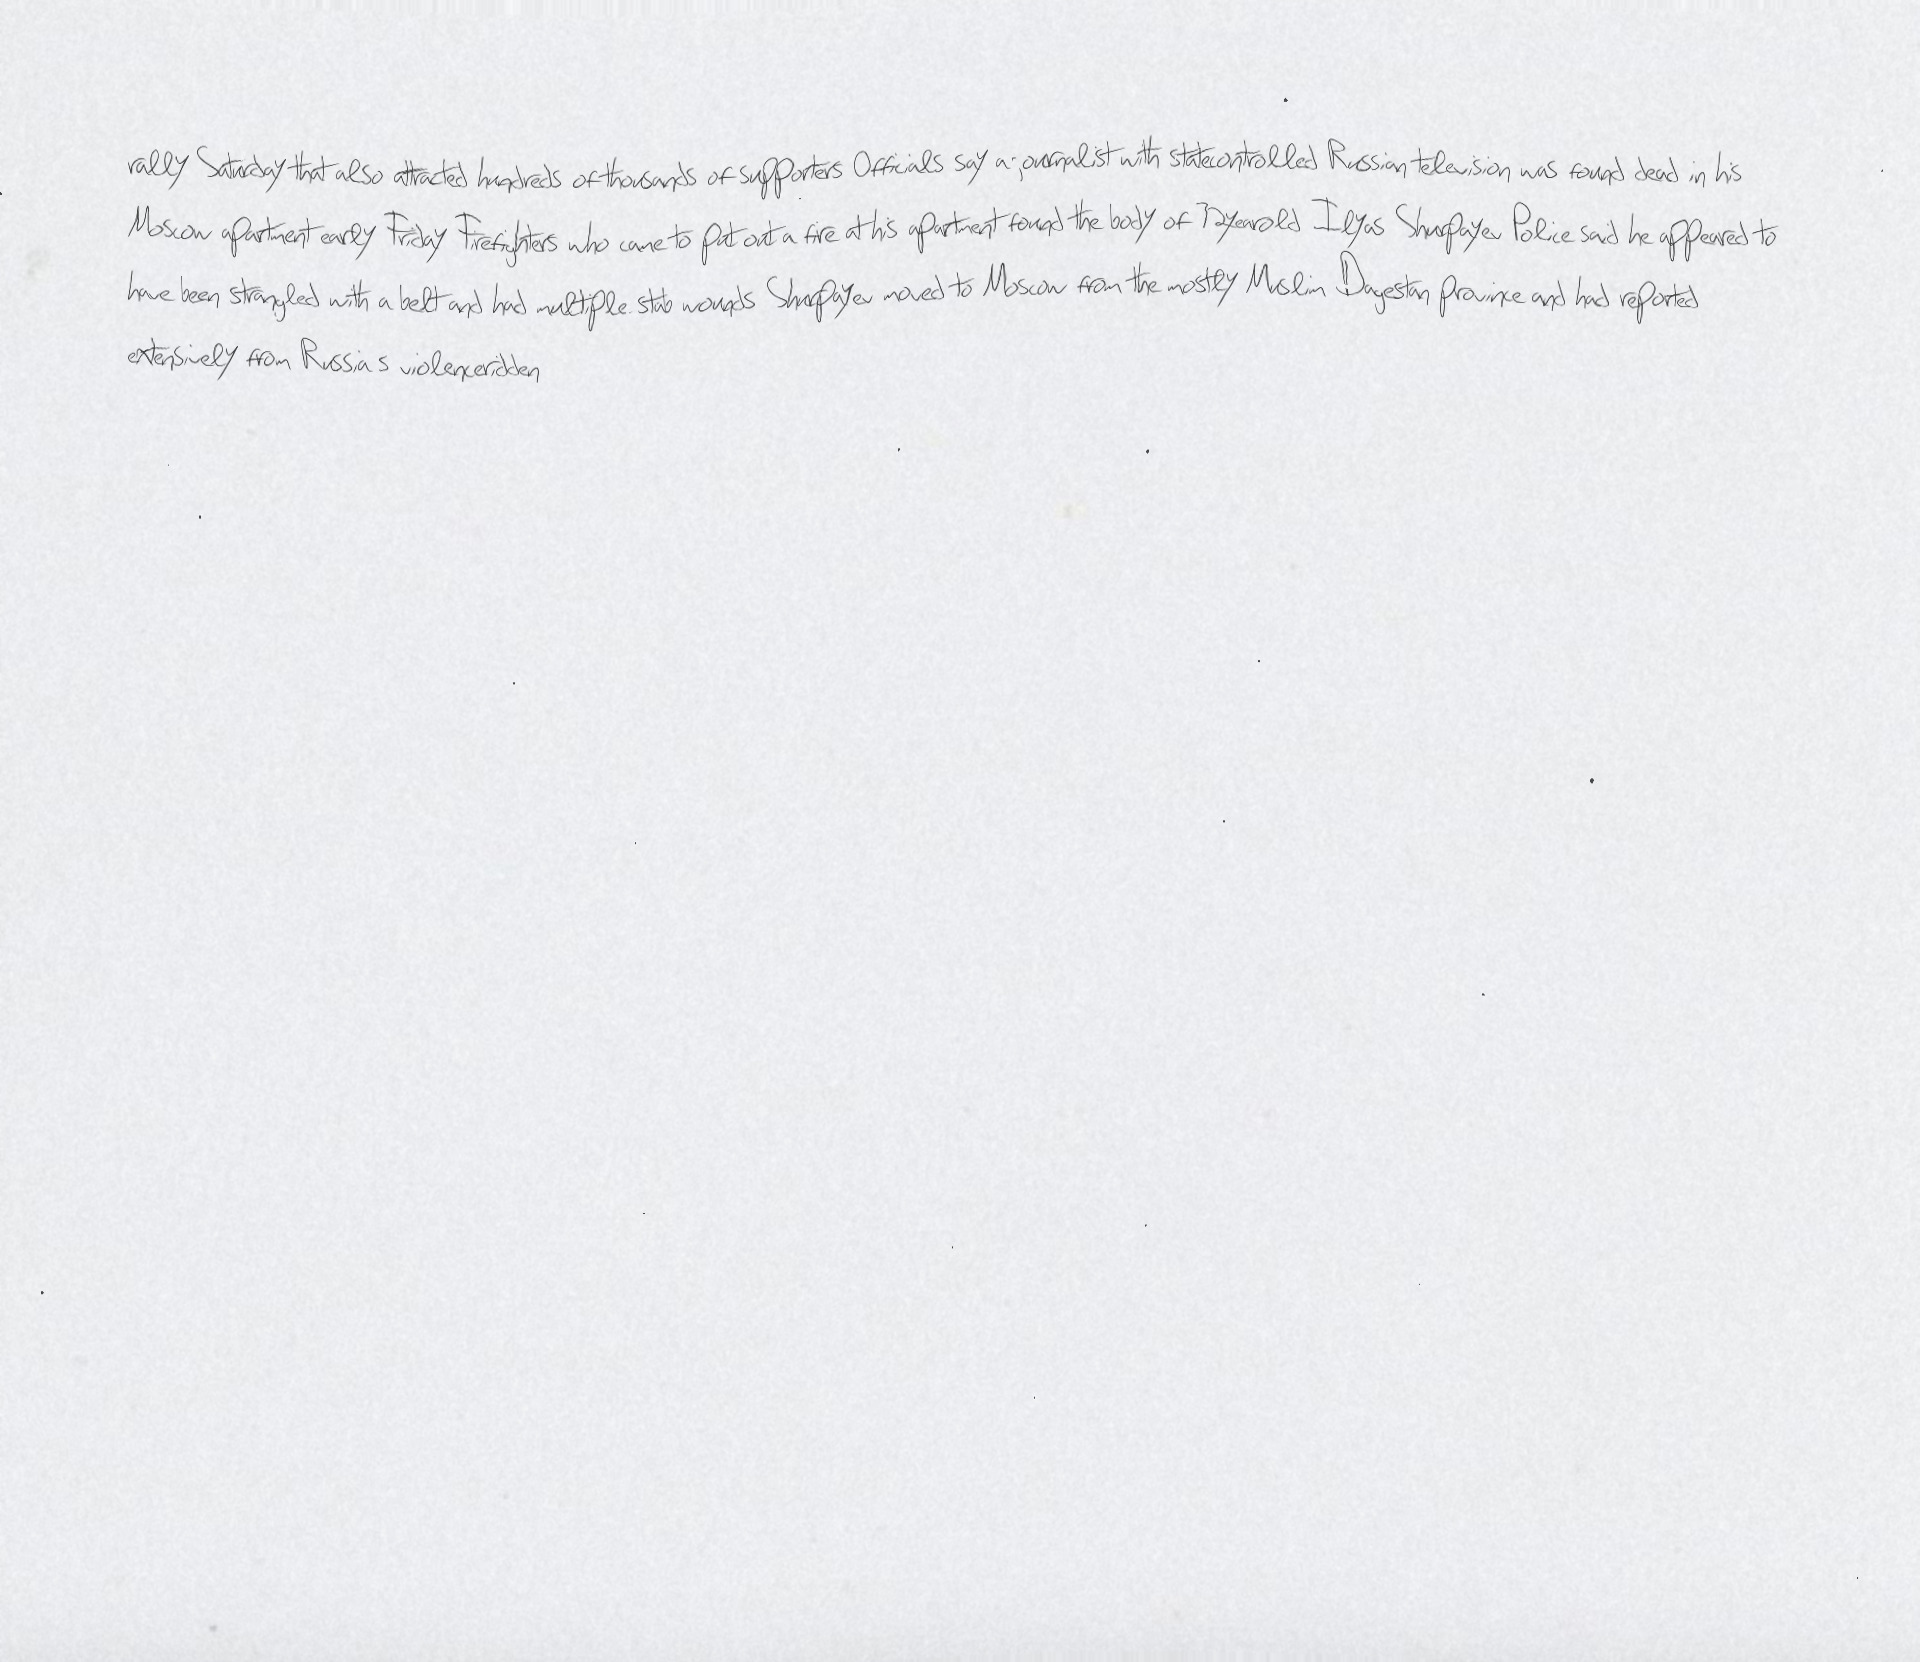 rally Saturday that also attracted hundreds of thousands of supporters Officials say a journalist with statecontrolled Russian television was found dead in his
Moscow apartment early Friday Firefighters who came to put out a fire at his apartment found the body of 32yearold Ilyas Shurpayev Police said he appeared to
have been strangled with a belt and had multiple stab wounds Shurpayev moved to Moscow from the mostly Muslim Dagestan province and had reported
extensively from Russia s violenceridden